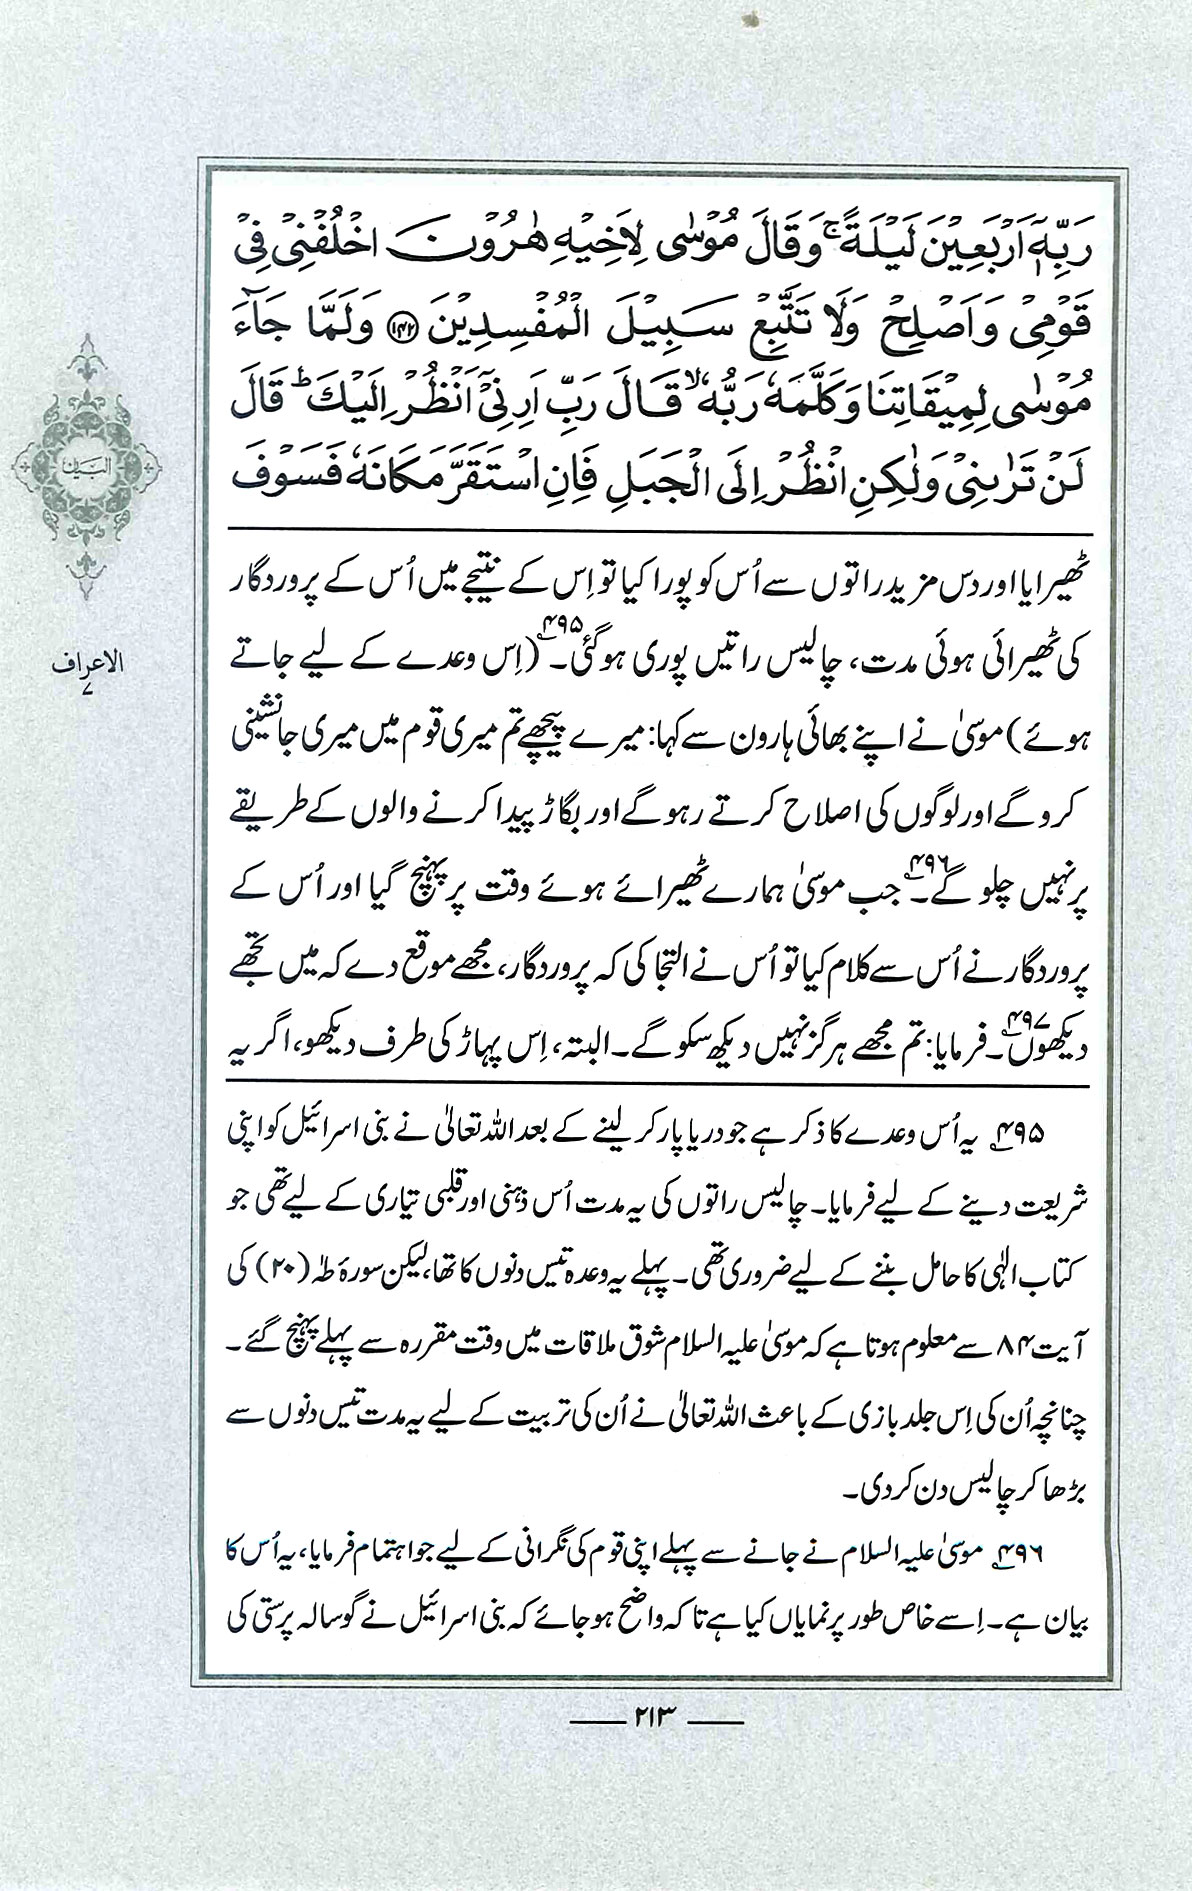 رَبِّهٖٓ اَرْبَعِيْنَ لَيْلَةًۚ وَقَالَ مُوْسٰى لِاَخِيْهِ هٰرُوْنَ اخْلُفْنِيْ فِيْ
قَوْمِيْ وَاَصْلِحْ وَلَا تَتَّبِعْ سَبِيْلَ الْمُفْسِدِيْنَ ﴿۱۴۲﴾ وَلَمَّا جَآءَ
مُوْسٰى لِمِيْقَاتِنَا وَكَلَّمَهٗ رَبُّهٗۙ قَالَ رَبِّ اَرِنِيْٓ اَنْظُرْ اِلَيْكَؕ قَالَ
لَنْ تَرٰىنِيْ وَلٰكِنِ انْظُرْ اِلَى الْجَبَلِ فَاِنِ اسْتَقَرَّ مَكَانَهٗ فَسَوْفَ
ٹھیرایا اور دس مزید راتوں سے اُس کو پورا کیا تو اِس کے نتیجے میں اُس کے پروردگار
کی ٹھیرائی ہوئی مدت، چالیس راتیں پوری ہوگئی۔۴۹۵ (اِس وعدے کے لیے جاتے
ہوئے) موسیٰ نے اپنے بھائی ہارون سے کہا: میرے پیچھے تم میری قوم میں میری جانشینی
کرو گے اور لوگوں کی اصلاح کرتے رہو گے اور بگاڑ پیدا کرنے والوں کے طریقے
پر نہیں چلو گے۔۴۹۶ جب موسیٰ ہمارے ٹھیرائے ہوئے وقت پر پہنچ گیا اور اُس کے
پروردگار نے اُس سے کلام کیا تو اُس نے التجا کی کہ پروردگار، مجھے موقع دے کہ میں تجھے
دیکھوں۴۹۷۔ فرمایا: تم مجھے ہرگز نہیں دیکھ سکو گے۔ البتہ، اِس پہاڑ کی طرف دیکھو، اگر یہ
۴۹۵؎ یہ اُس وعدے کا ذکر ہے جو دریا پار کر لینے کے بعد اللہ تعالیٰ نے بنی اسرائیل کو اپنی
شریعت دینے کے لیے فرمایا۔ چالیس راتوں کی یہ مدت اُس ذہنی اور قلبی تیاری کے لیے تھی جو
کتاب الٰہی کا حامل بننے کے لیے ضروری تھی۔ پہلے یہ وعدہ تیس دنوں کا تھا، لیکن سورۂ طٰہٰ (۲۰) کی
آیت ۸۴ سے معلوم ہوتا ہے کہ موسیٰ علیہ السلام شوق ملاقات میں وقت مقررہ سے پہلے پہنچ گئے۔
چنانچہ اُن کی اِس جلد بازی کے باعث اللہ تعالیٰ نے اُن کی تربیت کے لیے یہ مدت تیس دنوں سے
بڑھا کر چالیس دن کر دی۔
۴۹۶؎ موسیٰ علیہ السلام نے جانے سے پہلے اپنی قوم کی نگرانی کے لیے جو اہتمام فرمایا، یہ اُس کا
بیان ہے۔ اِسے خاص طور پر نمایاں کیا ہے تاکہ واضح ہو جائے کہ بنی اسرائیل نے گوسالہ پرستی کی
البیان
الاعراف
۷
۲۱۳